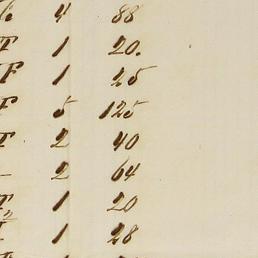 4 88
F 1 20.
F 1 25
F 5 125
F 2 40
2 64
F 1 20
2 1 28